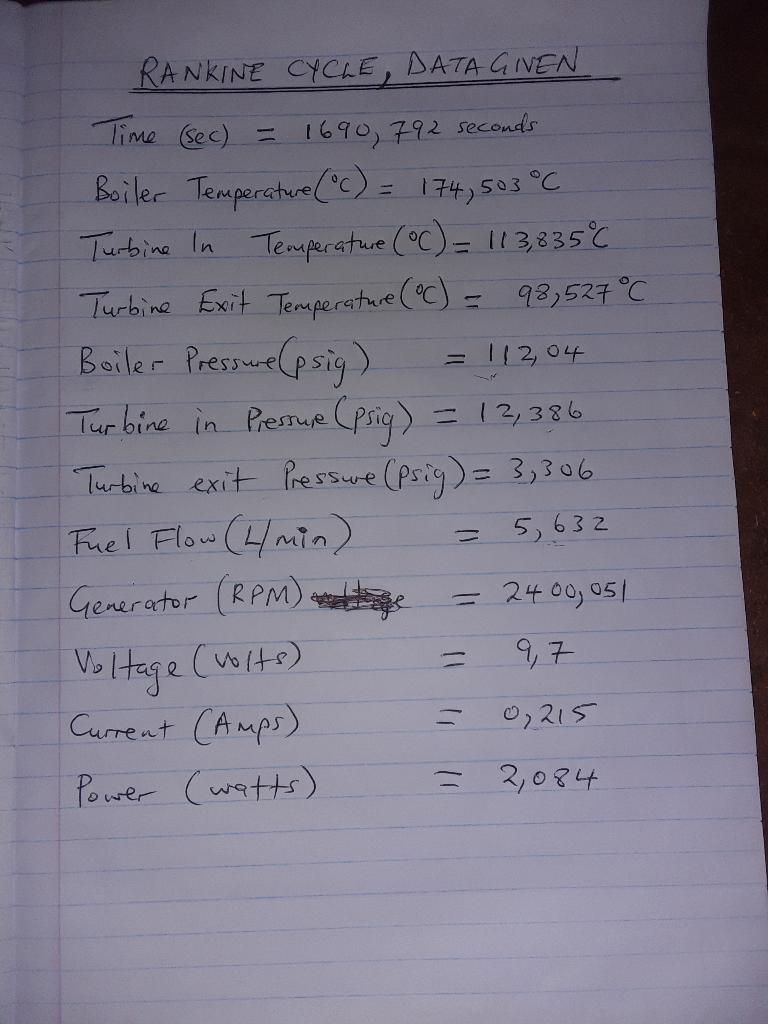 RANKINE CYCLE, DATA GIVEN
Time (sec) = 1690,792 seconds
Boiler Temperature (°C) = 174,503 °C
Turbine In Temperature (°C) = 113,835°C
Turbine Exit Temperature (°C) = 98,527 °C
Boiler Pressure (psig) = 112,04
Turbine in Pressure (psig) = 12,386
Turbine exit Pressure (psig) = 3,306
Fuel Flow (L/min) = 5,632
Generator (RPM) = 2400,051
Voltage (volts) = 9,7
Current (Amps) = 0,215
Power (watts) = 2,084